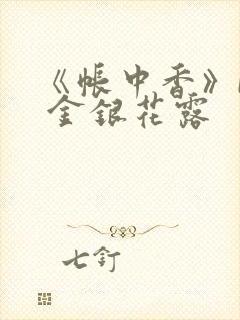 《帐中香》
金银花露
七钉